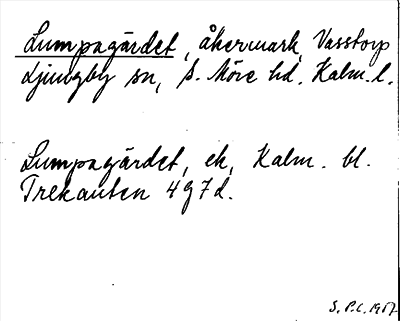 Lumpagärdet, åkermark, Vasstorp
Ljungby sn, S. Möre hd. Kalm. l.
Lumpagärdet, ek, Kalm. bl.
Trekanten 4g7d.
S. P.C. 1957